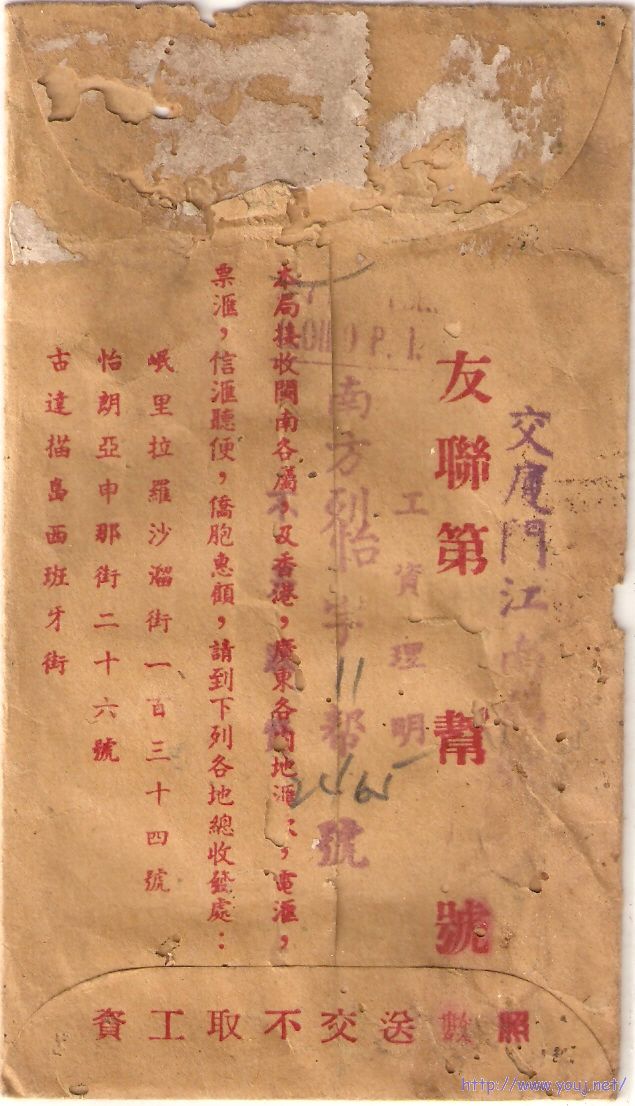 交廈門江南
友聯第 幇 號
工資理明
南方列怡字 11 帮 2465 號
P. I.
本局接收閩南各屬，及香港，廣東各內地滙，電滙，
票滙，信滙聽便，僑胞惠顧，請到下列各地總收發處：
岷里拉羅沙溜街一百三十四號
怡朗亞申那街二十六號
古達描島西班牙街
照數送交不取工資
http://www.youj.net/